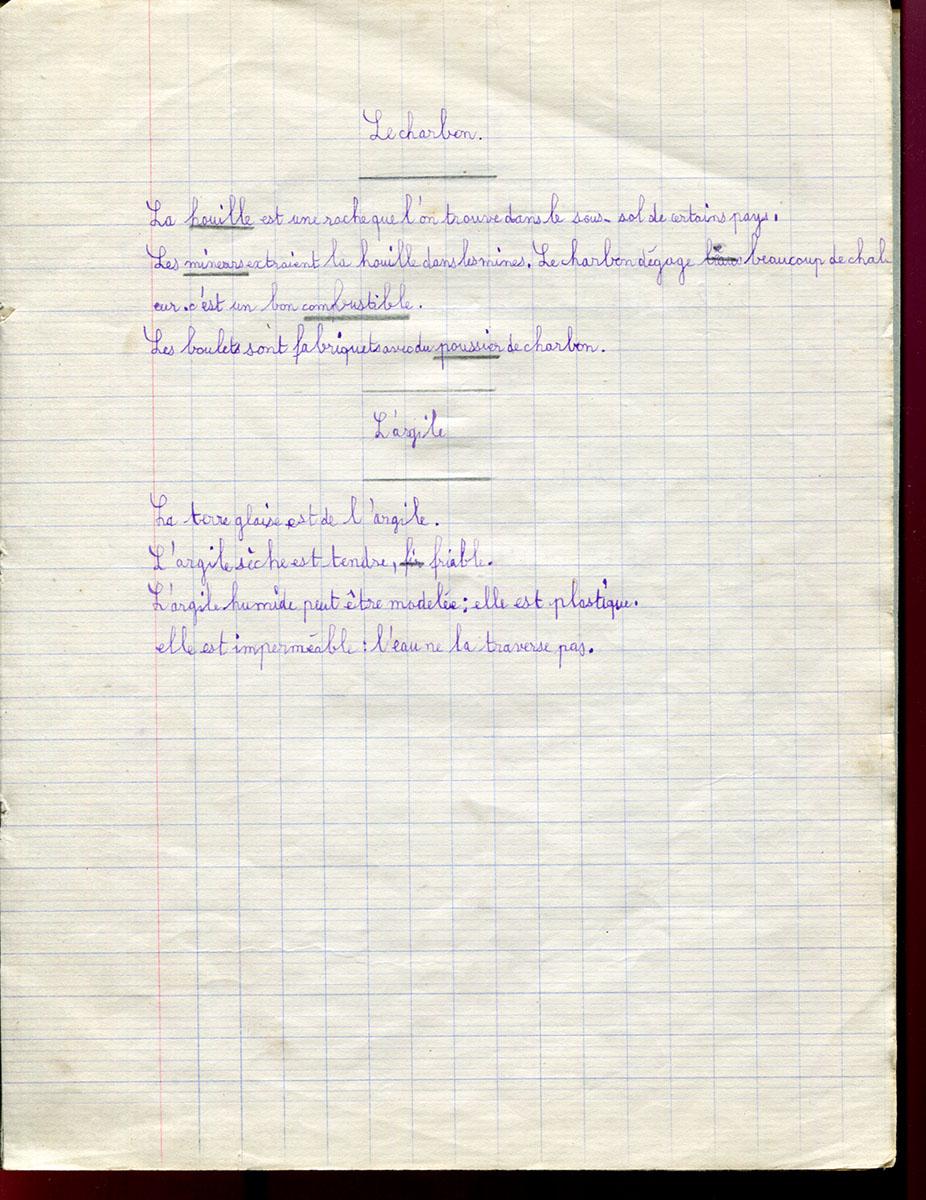 Le charbon.
La houille est une roche que l'on trouve dans le sous-sol de certains pays.
Les mineurs extraient la houille dans les mines. Le charbon dégage beaucoup de chal
eur. c'est un bon combustible.
Les boulets sont fabriquets avec du poussier de charbon.
L'argile
La terre glaise est de l'argile.
L'argile sèche est tendre, friable.
L'argile humide peut être modelée; elle est plastique.
elle est imperméable: l'eau ne la traverse pas.